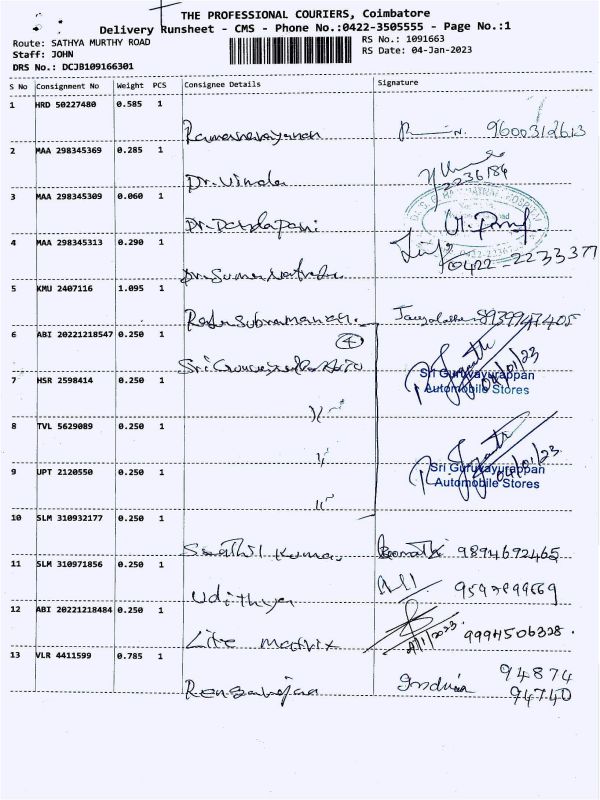 THE PROFESSIONAL COURIERS, Coimbatore
Delivery Runsheet - CMS - Phone No.:0422-3505555 - Page No.:1
Route: SATHYA MURTHY ROAD
Staff: JOHN
DRS No.: DCJB109166301
RS No.: 1091663
RS Date: 04-Jan-2023
S No Consignment No Weight PCS Consignee Details Signature
1 HRD 50227480 0.585 1
9600312613
2 MAA 298345369 0.285 1
Dr. Vimala 2236184
3 MAA 298345309 0.060 1
4 MAA 298345313 0.290 1
0422-2233377
5 KMU 2407116 1.095 1
8939947405
6 ABI 20221218547 0.250 1
4
04/01/23
Sri Guruvayurappan
Automobile Stores
7 HSR 2598414 0.250 1
8 TVL 5629089 0.250 1
04/01/23
Sri Guruvayurappan
Automobile Stores
9 UPT 2120550 0.250 1
10 SLM 310932177 0.250 1
Senthil Kumar 9894692465
11 SLM 310971856 0.250 1
Udithya
12 ABI 20221218484 0.250 1
Life matrix 4/1/2023 9994506328
13 VLR 4411599 0.785 1
94874
94740